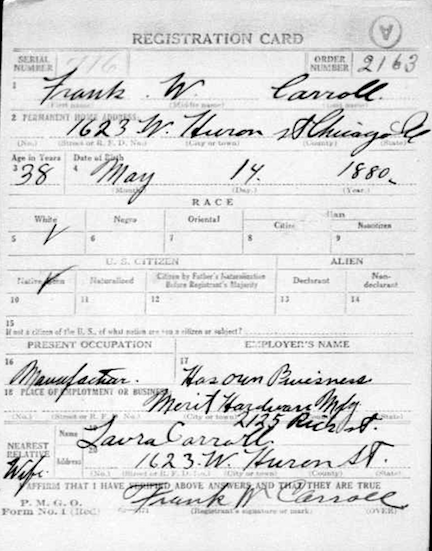 A
REGISTRATION CARD
SERIAL NUMBER 716 ORDER NUMBER 2163
1 Frank W. Carroll.
(First name) (Middle name) (Last name)
2 PERMANENT HOME ADDRESS:
1623 W. Huron st Chicago Ill
(No.) (Street or R. F. D. No.) (City or town) (County) (State)
Age in Years Date of Birth
3 38 4 May 14. 1880.
(Month.) (Day.) (Year.)
RACE
White Negro Oriental Indian
Citizen Noncitizen
5 6 7 8 9
U. S. CITIZEN ALIEN
Native Born Naturalized Citizen by Father's Naturalization Before Registrant's Majority Declarant Non-declarant
10 11 12 13 14
15
If not a citizen of the U. S., of what nation are you a citizen or subject?
PRESENT OCCUPATION EMPLOYER'S NAME
16 Manufactur. 17 Has own Buisness
18 PLACE OF EMPLOYMENT OR BUSINESS: Merit Hardware Mfg
2125 st.
(No.) (Street or R. F. D. No.) (City or town) (County) (State)
NEAREST RELATIVE Name Laura Carroll
Wife Address 20 1623 W. Huron ST.
(No.) (Street or R. F. D. No.) (City or town) (County) (State)
I AFFIRM THAT I HAVE VERIFIED ABOVE ANSWERS AND THAT THEY ARE TRUE
P. M. G. O.
Form No. 1 (Red) Frank W Carroll
(Registrant's signature or mark) (OVER)